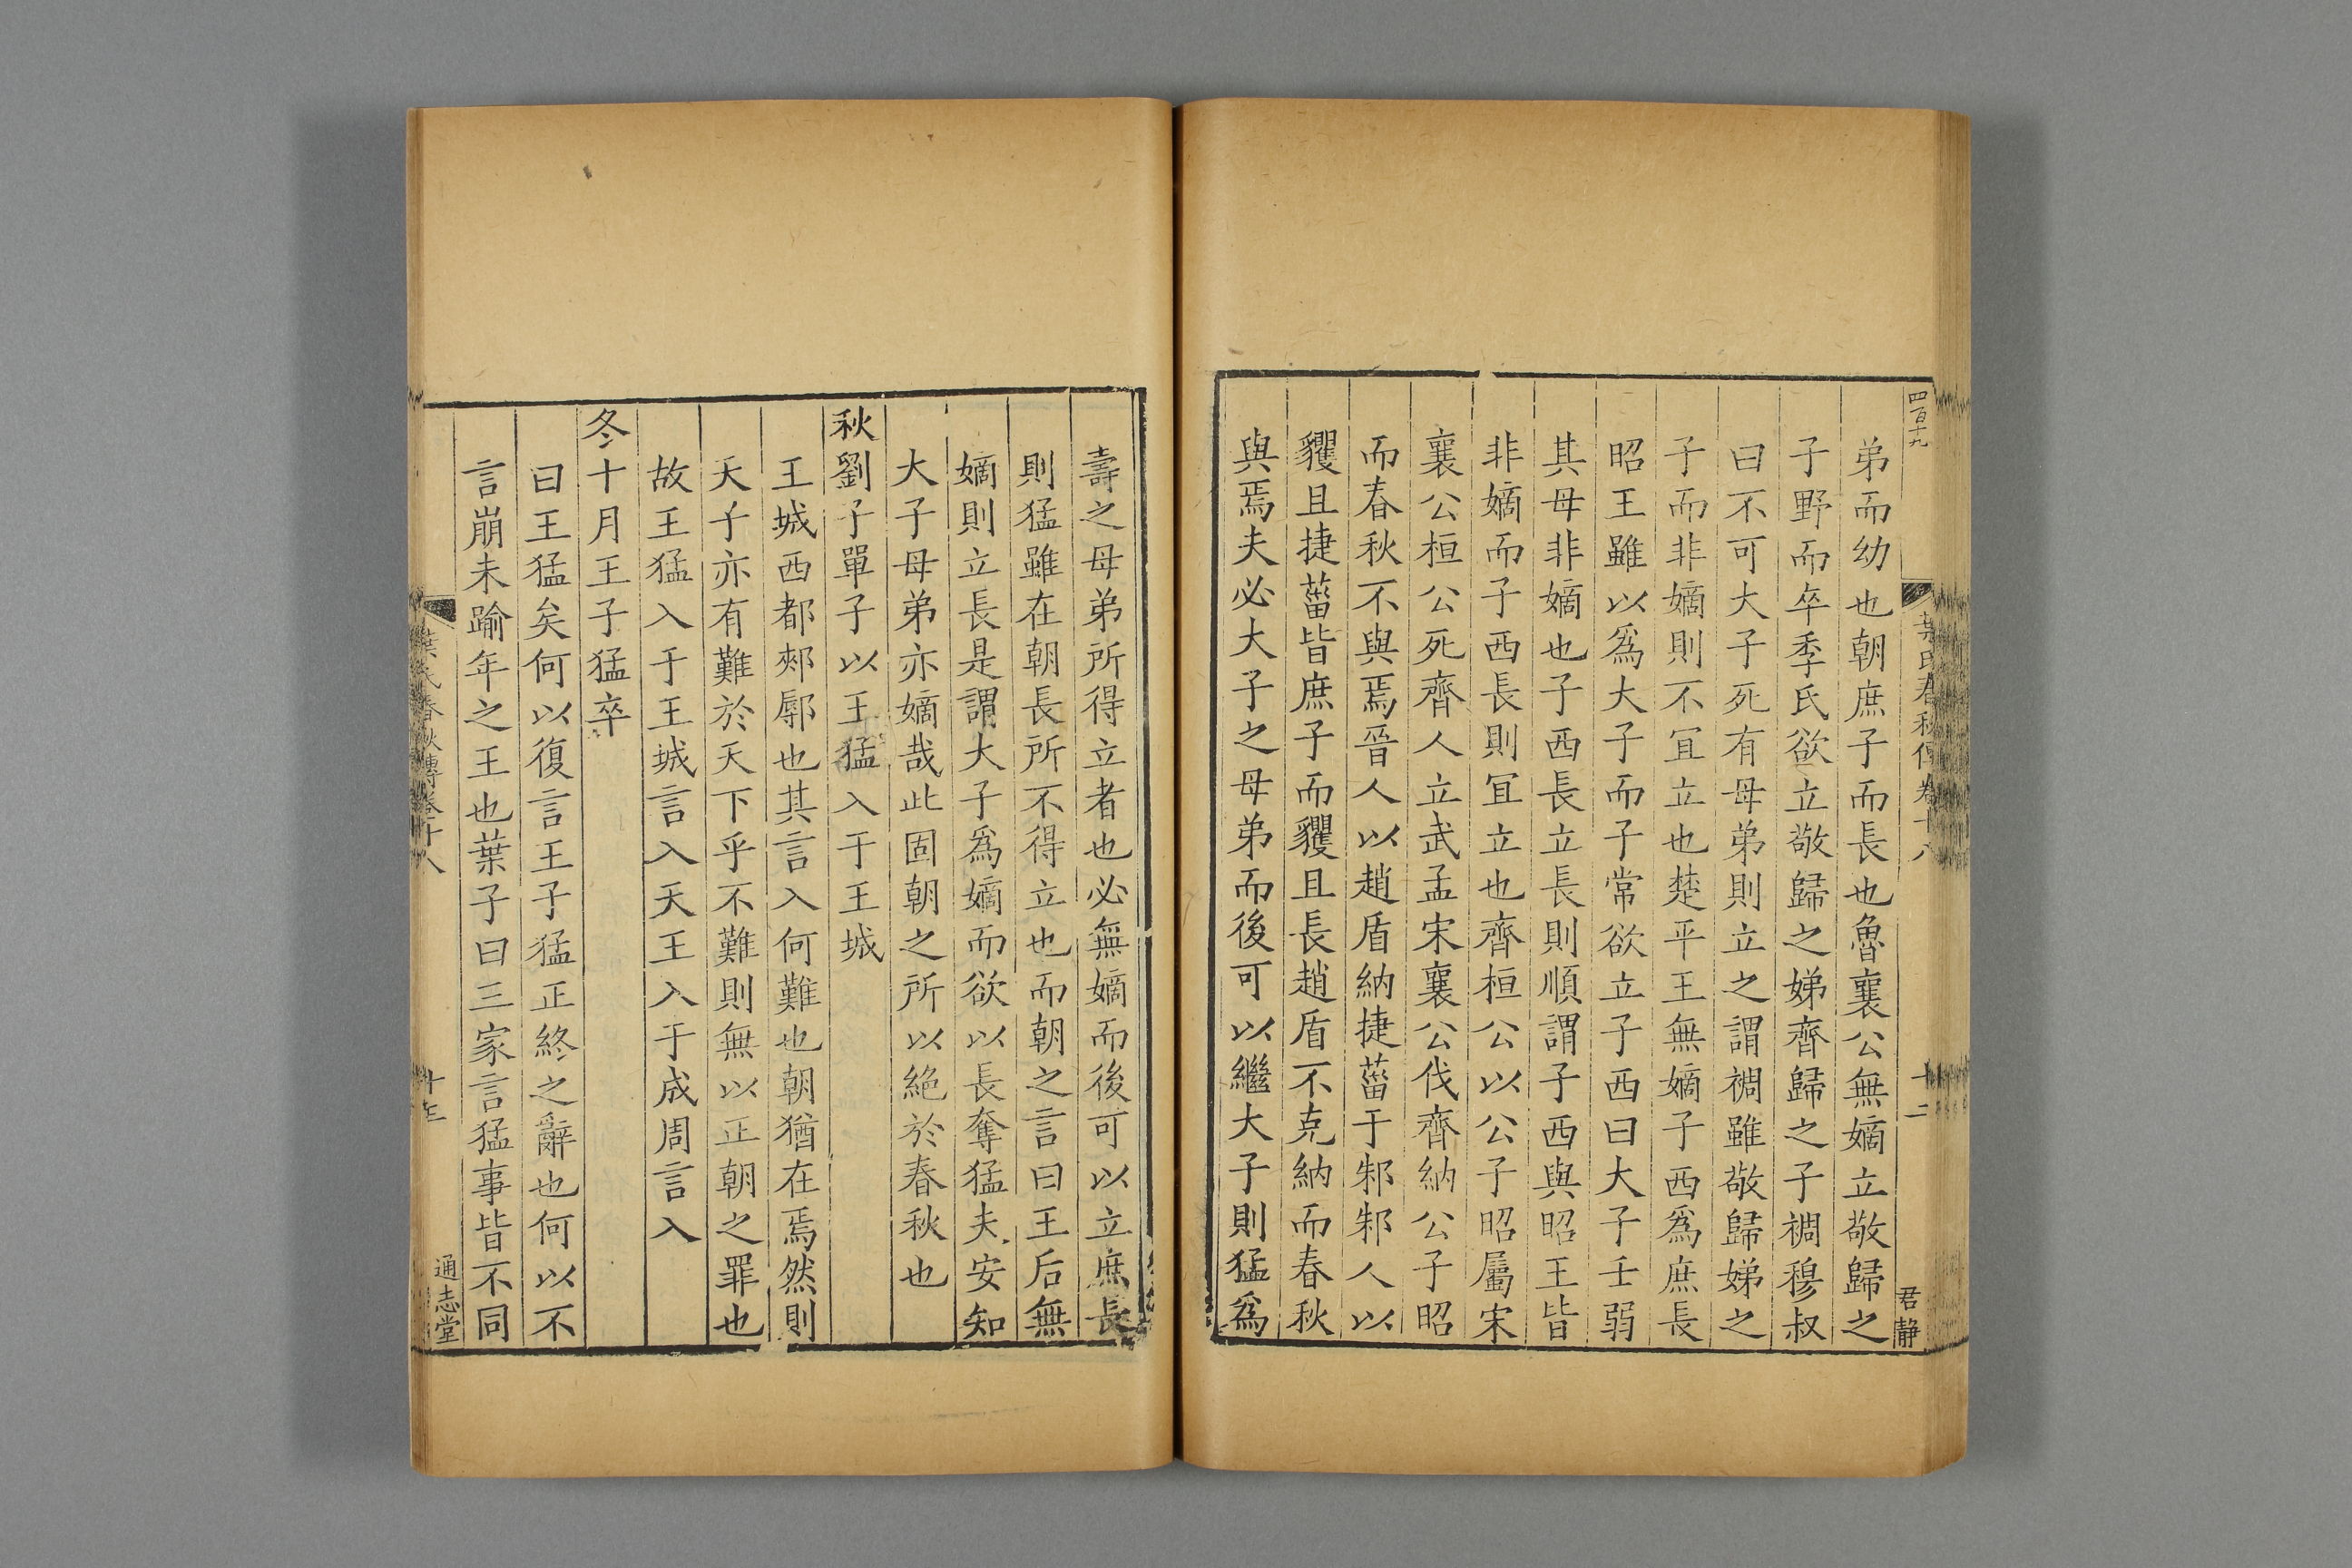 四百十九
葉氏春秋傳卷十八
十二
君靜
弟而幼也朝庶子而長也魯襄公無嫡立敬歸之
子野而卒季氏欲立敬歸之娣齊歸之子裯穆叔
曰不可大子死有母弟則立之謂裯雖敬歸娣之
子而非嫡則不冝立也楚平王無嫡子西爲庶長
昭王雖以爲大子而子常欲立子西曰大子壬弱
其母非嫡也子西長立長則順謂子西與昭王皆
非嫡而子西長則冝立也齊桓公以公子昭屬宋
襄公桓公死齊人立武孟宋襄公伐齊納公子昭
而春秋不與焉晉人以趙盾納捷菑于邾邾人以
貜且捷菑皆庶子而貜且長趙盾不克納而春秋
與焉夫必大子之母弟而後可以繼大子則猛爲
壽之母弟所得立者也必無嫡而後可以立庶長
則猛雖在朝長所不得立也而朝之言曰王后無
嫡則立長是謂大子爲嫡而欲以長奪猛夫安知
大子母弟亦嫡哉此固朝之所以絶於春秋也
秋劉子單子以王猛入于王城
王城西都郟鄏也其言入何難也朝猶在焉然則
天子亦有難於天下乎不難則無以正朝之罪也
故王猛入于王城言入天王入于成周言入
冬十月王子猛卒
曰王猛矣何以復言王子猛正終之辭也何以不
言崩未踰年之王也葉子曰三家言猛事皆不同
葉氏春秋傳卷十八
十三
通志堂